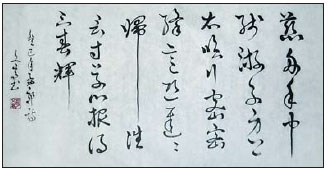 慈母手中
線遊子身上
衣臨行密密
縫意恐遲遲
歸誰
言寸草心報得
三春輝